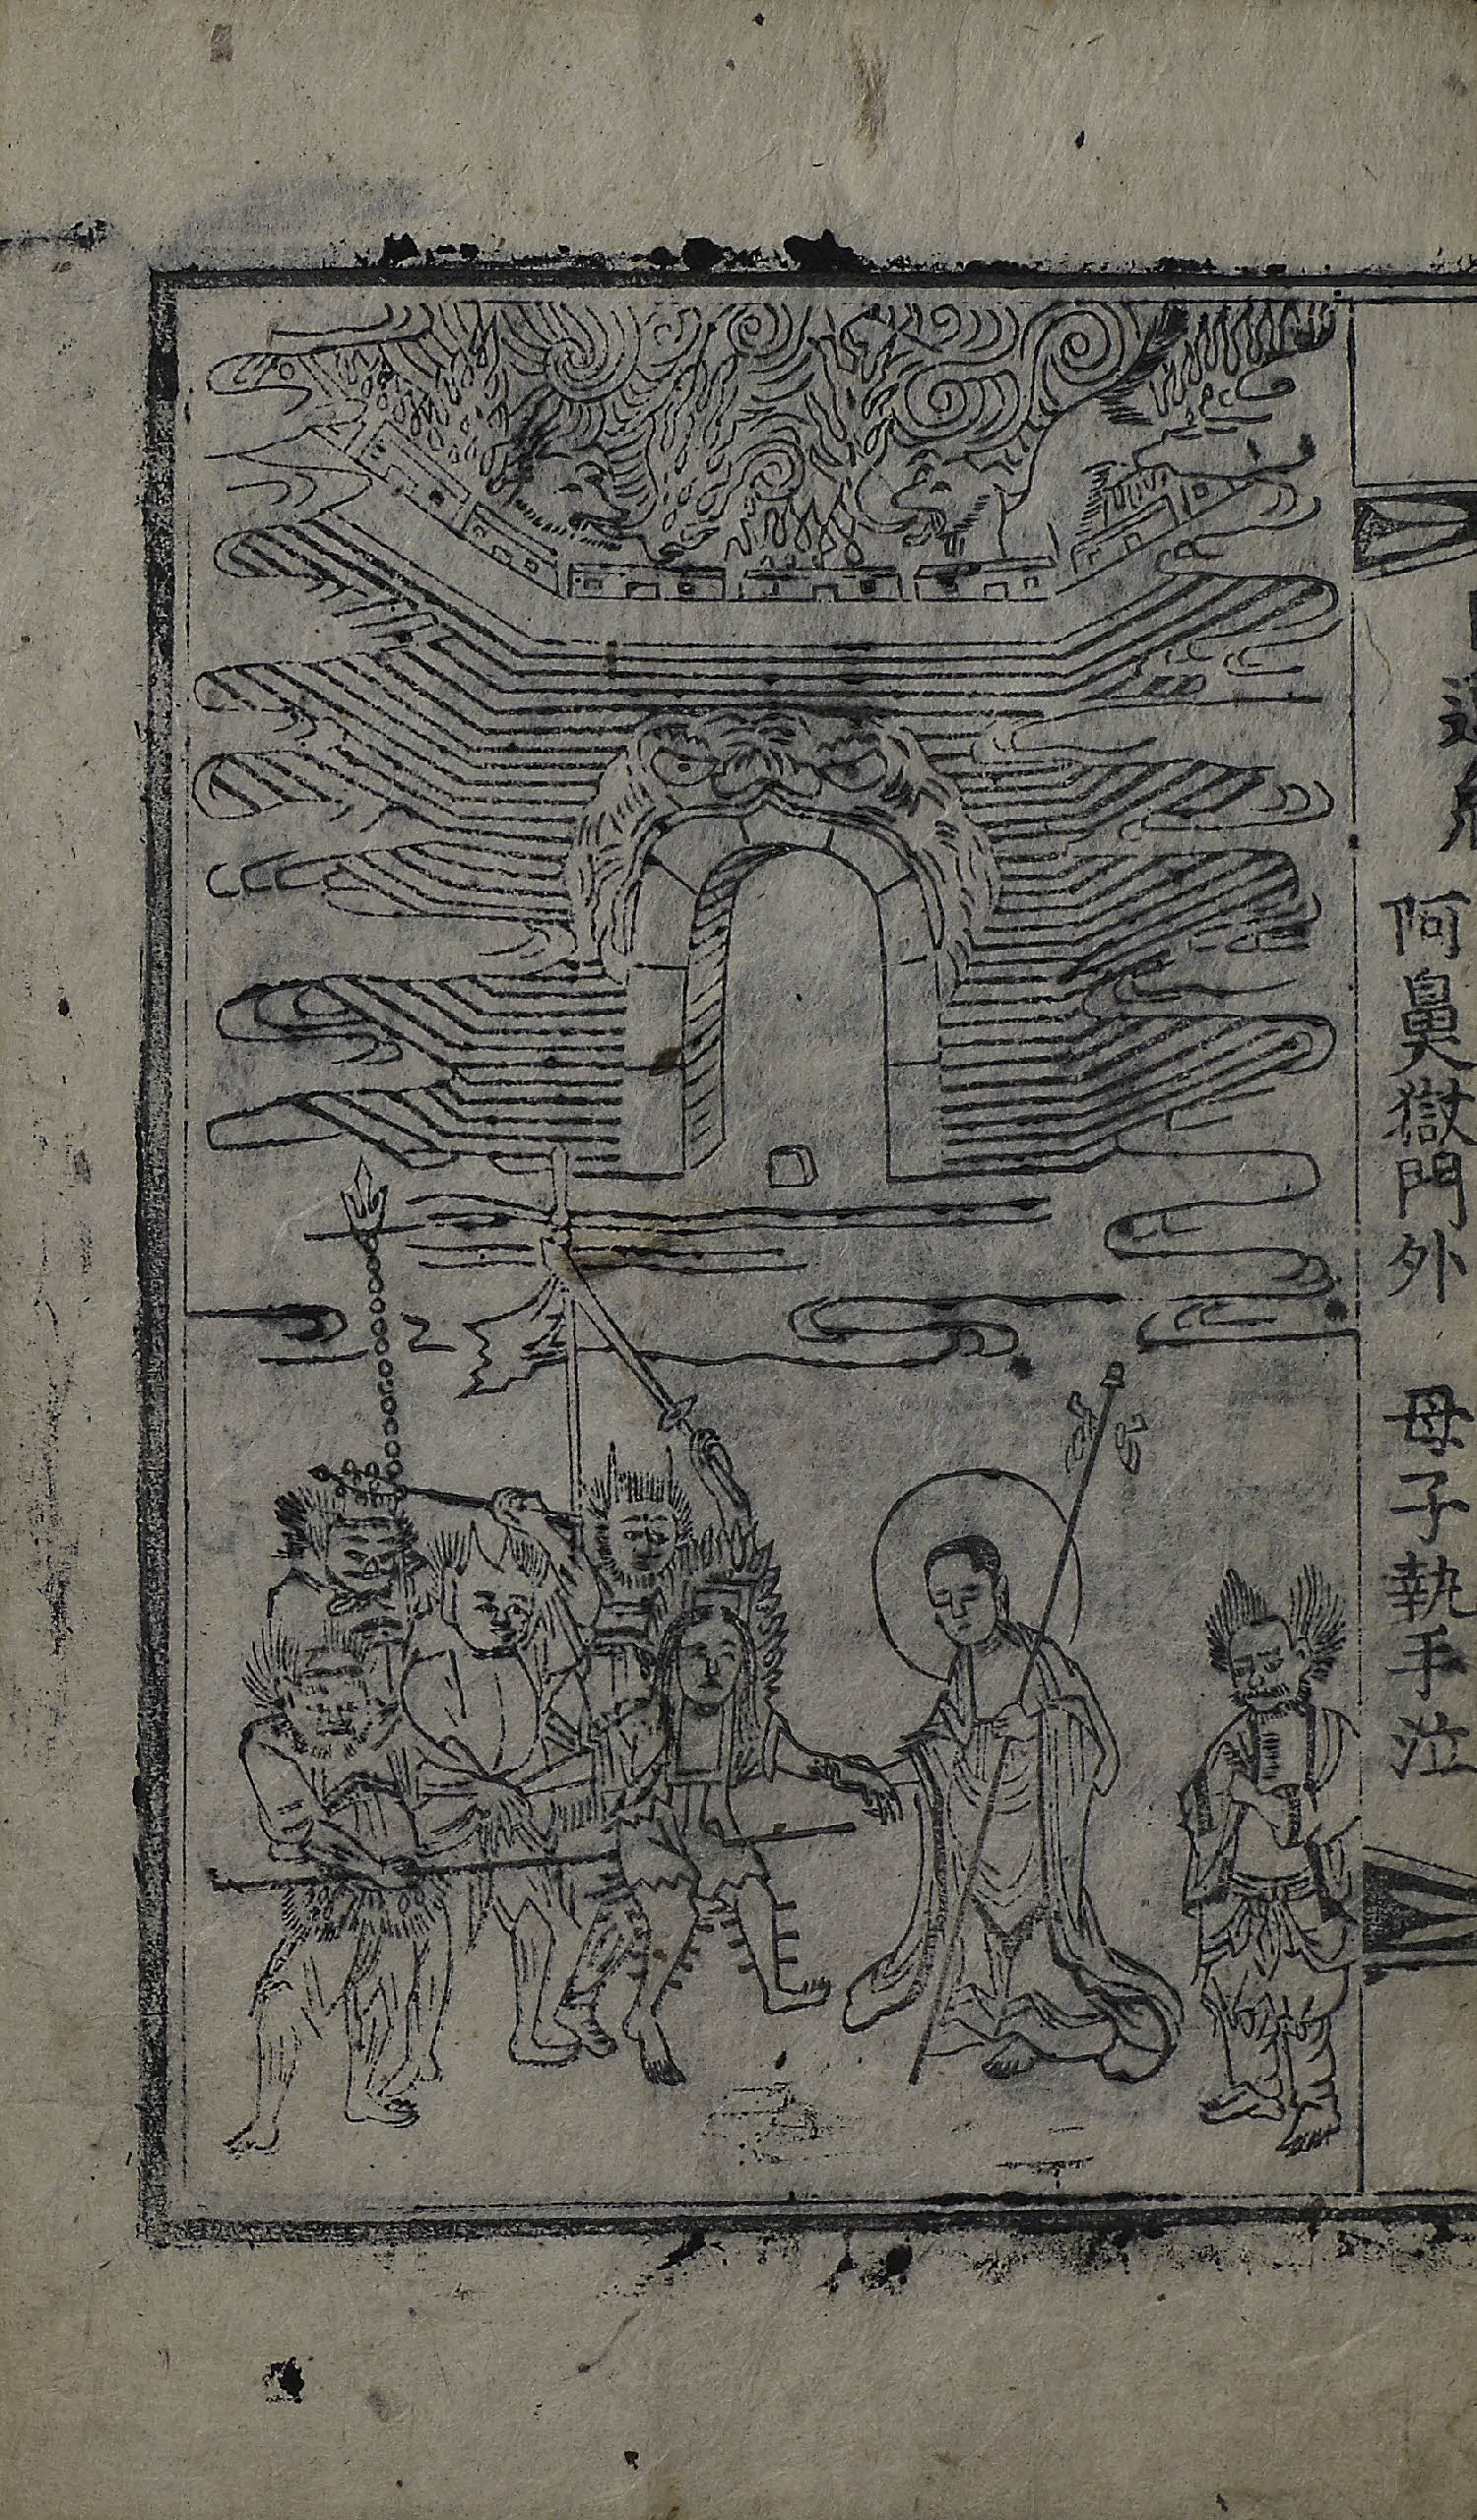 阿鼻獄門外 母子執手泣